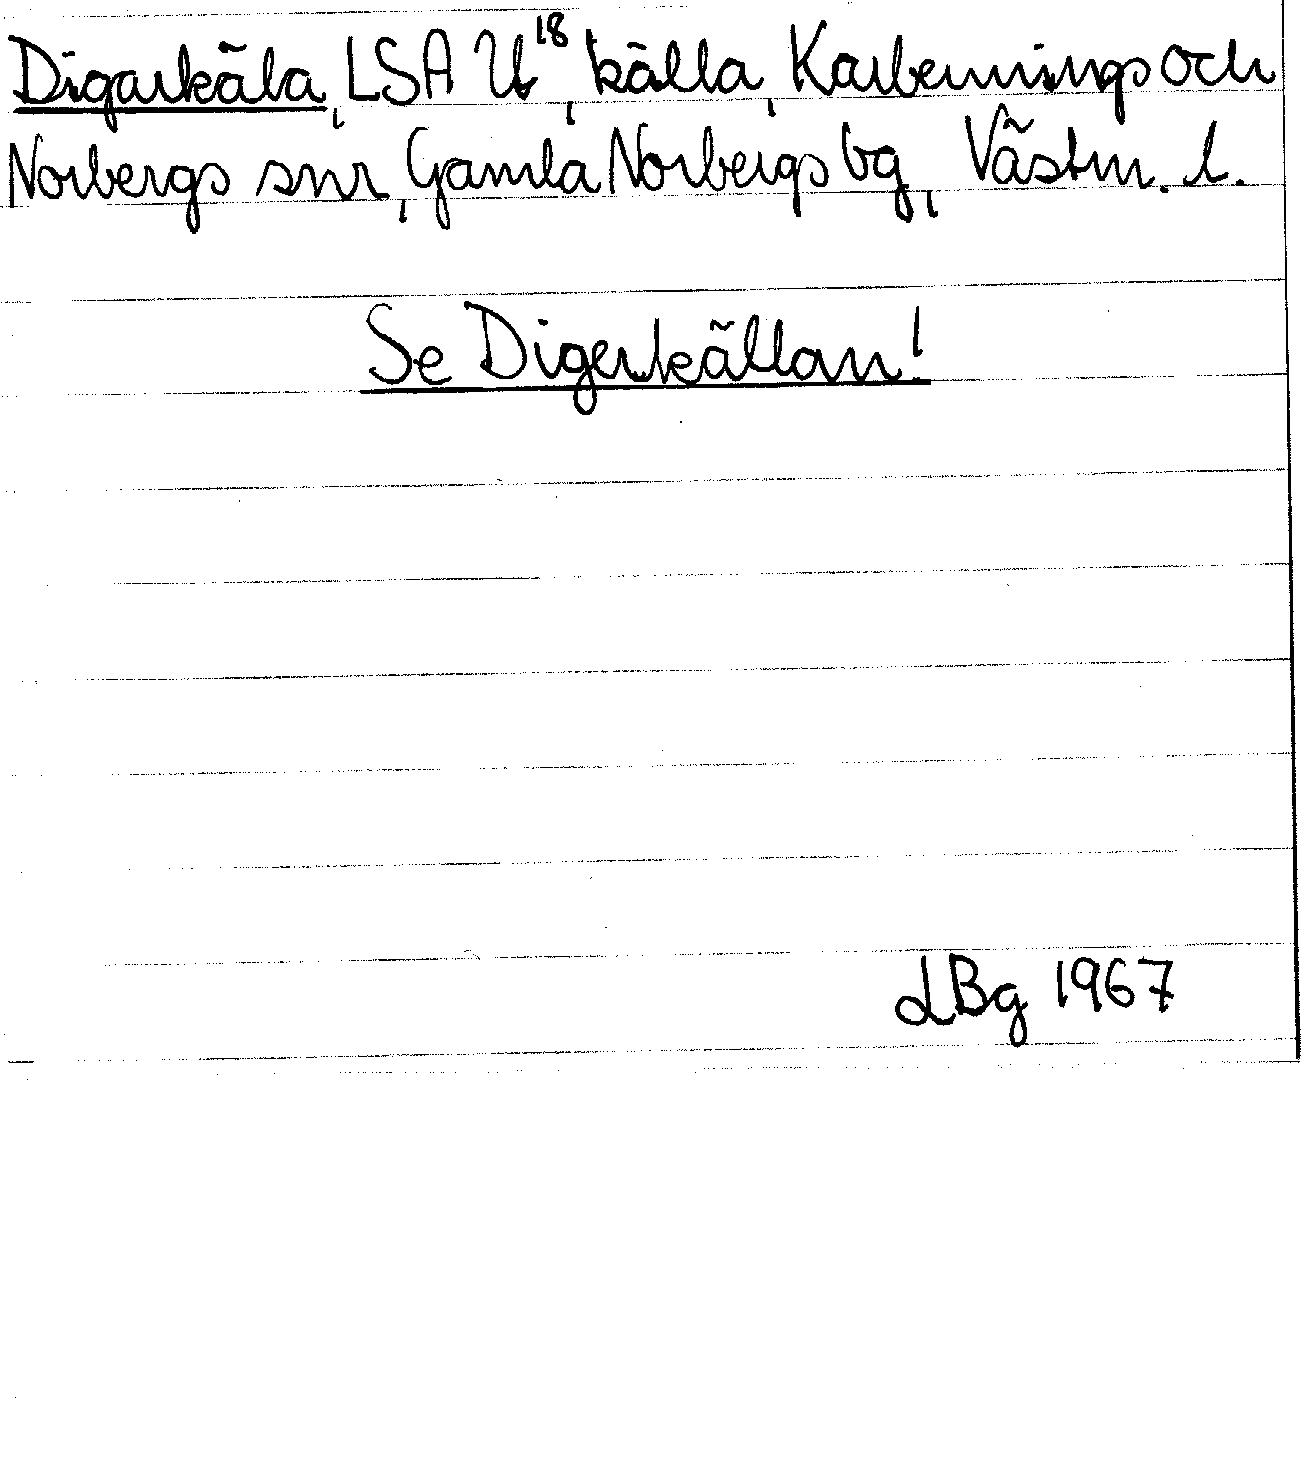 Digarkäla, LSA U¹⁸, källa, Karbennings och
Norbergs snr, Gamla Norbergs bg, Västm. l.
Se Digerkällan!
LBg 1967